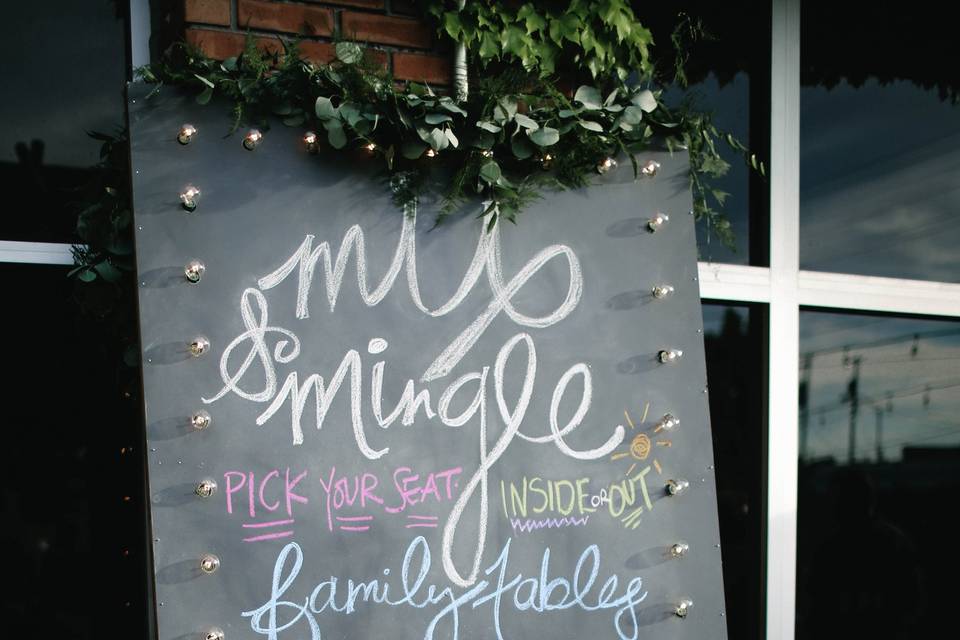 mix
& mingle
PICK YOUR SEAT.
INSIDE OR OUT
family tables